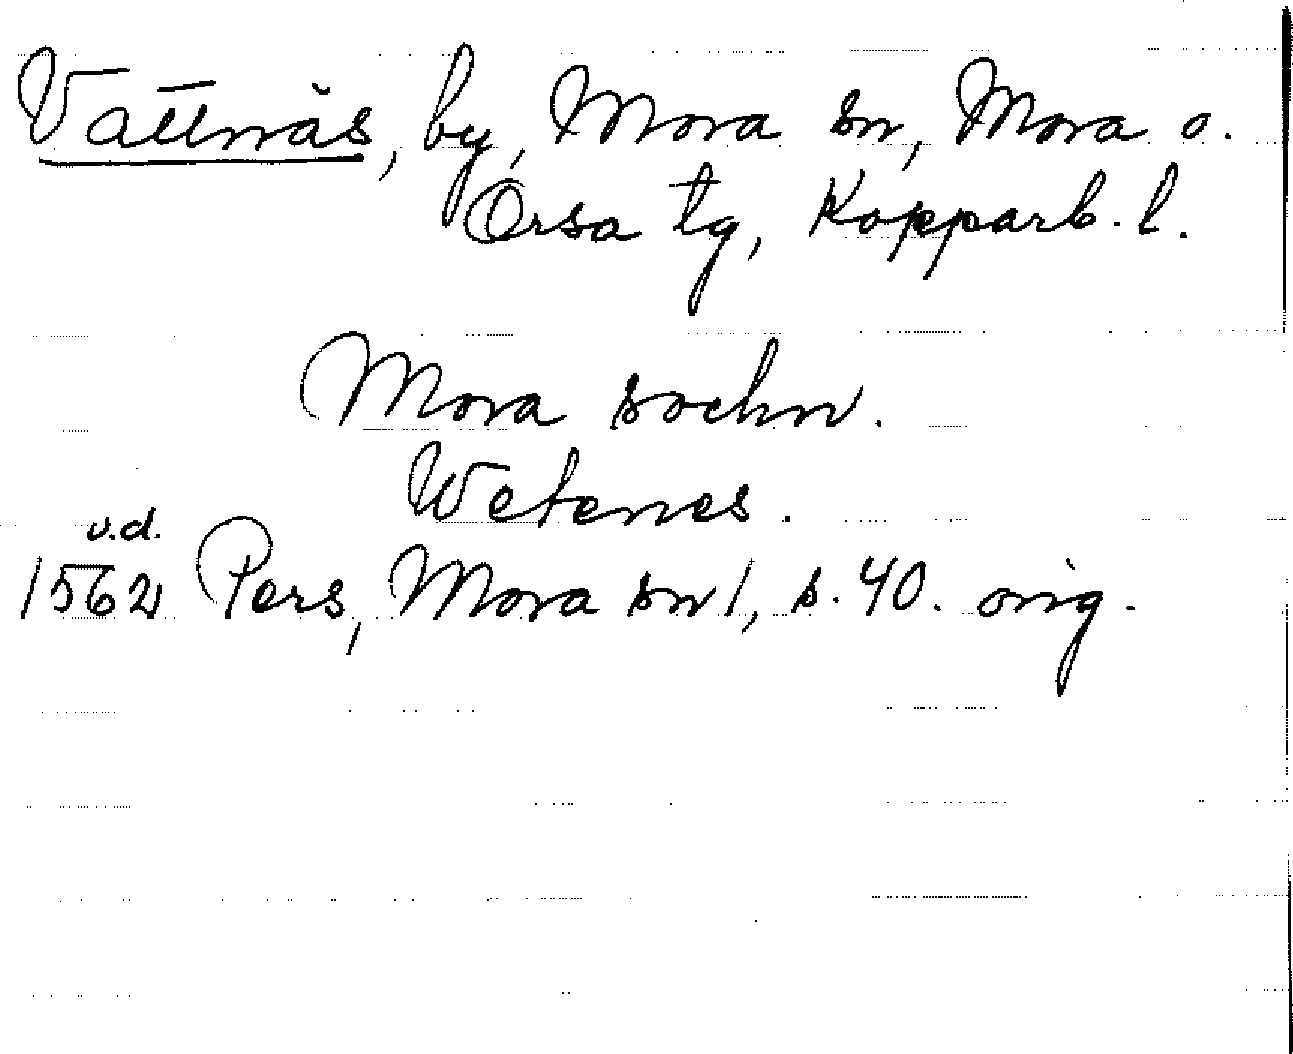 Vattnäs, by, Mora sn, Mora o.
Orsa tg, Kopparb. l.
Mora sochn.
Wetenes.
u.d.
1562 Pers, Mora sn 1, s. 40. orig.